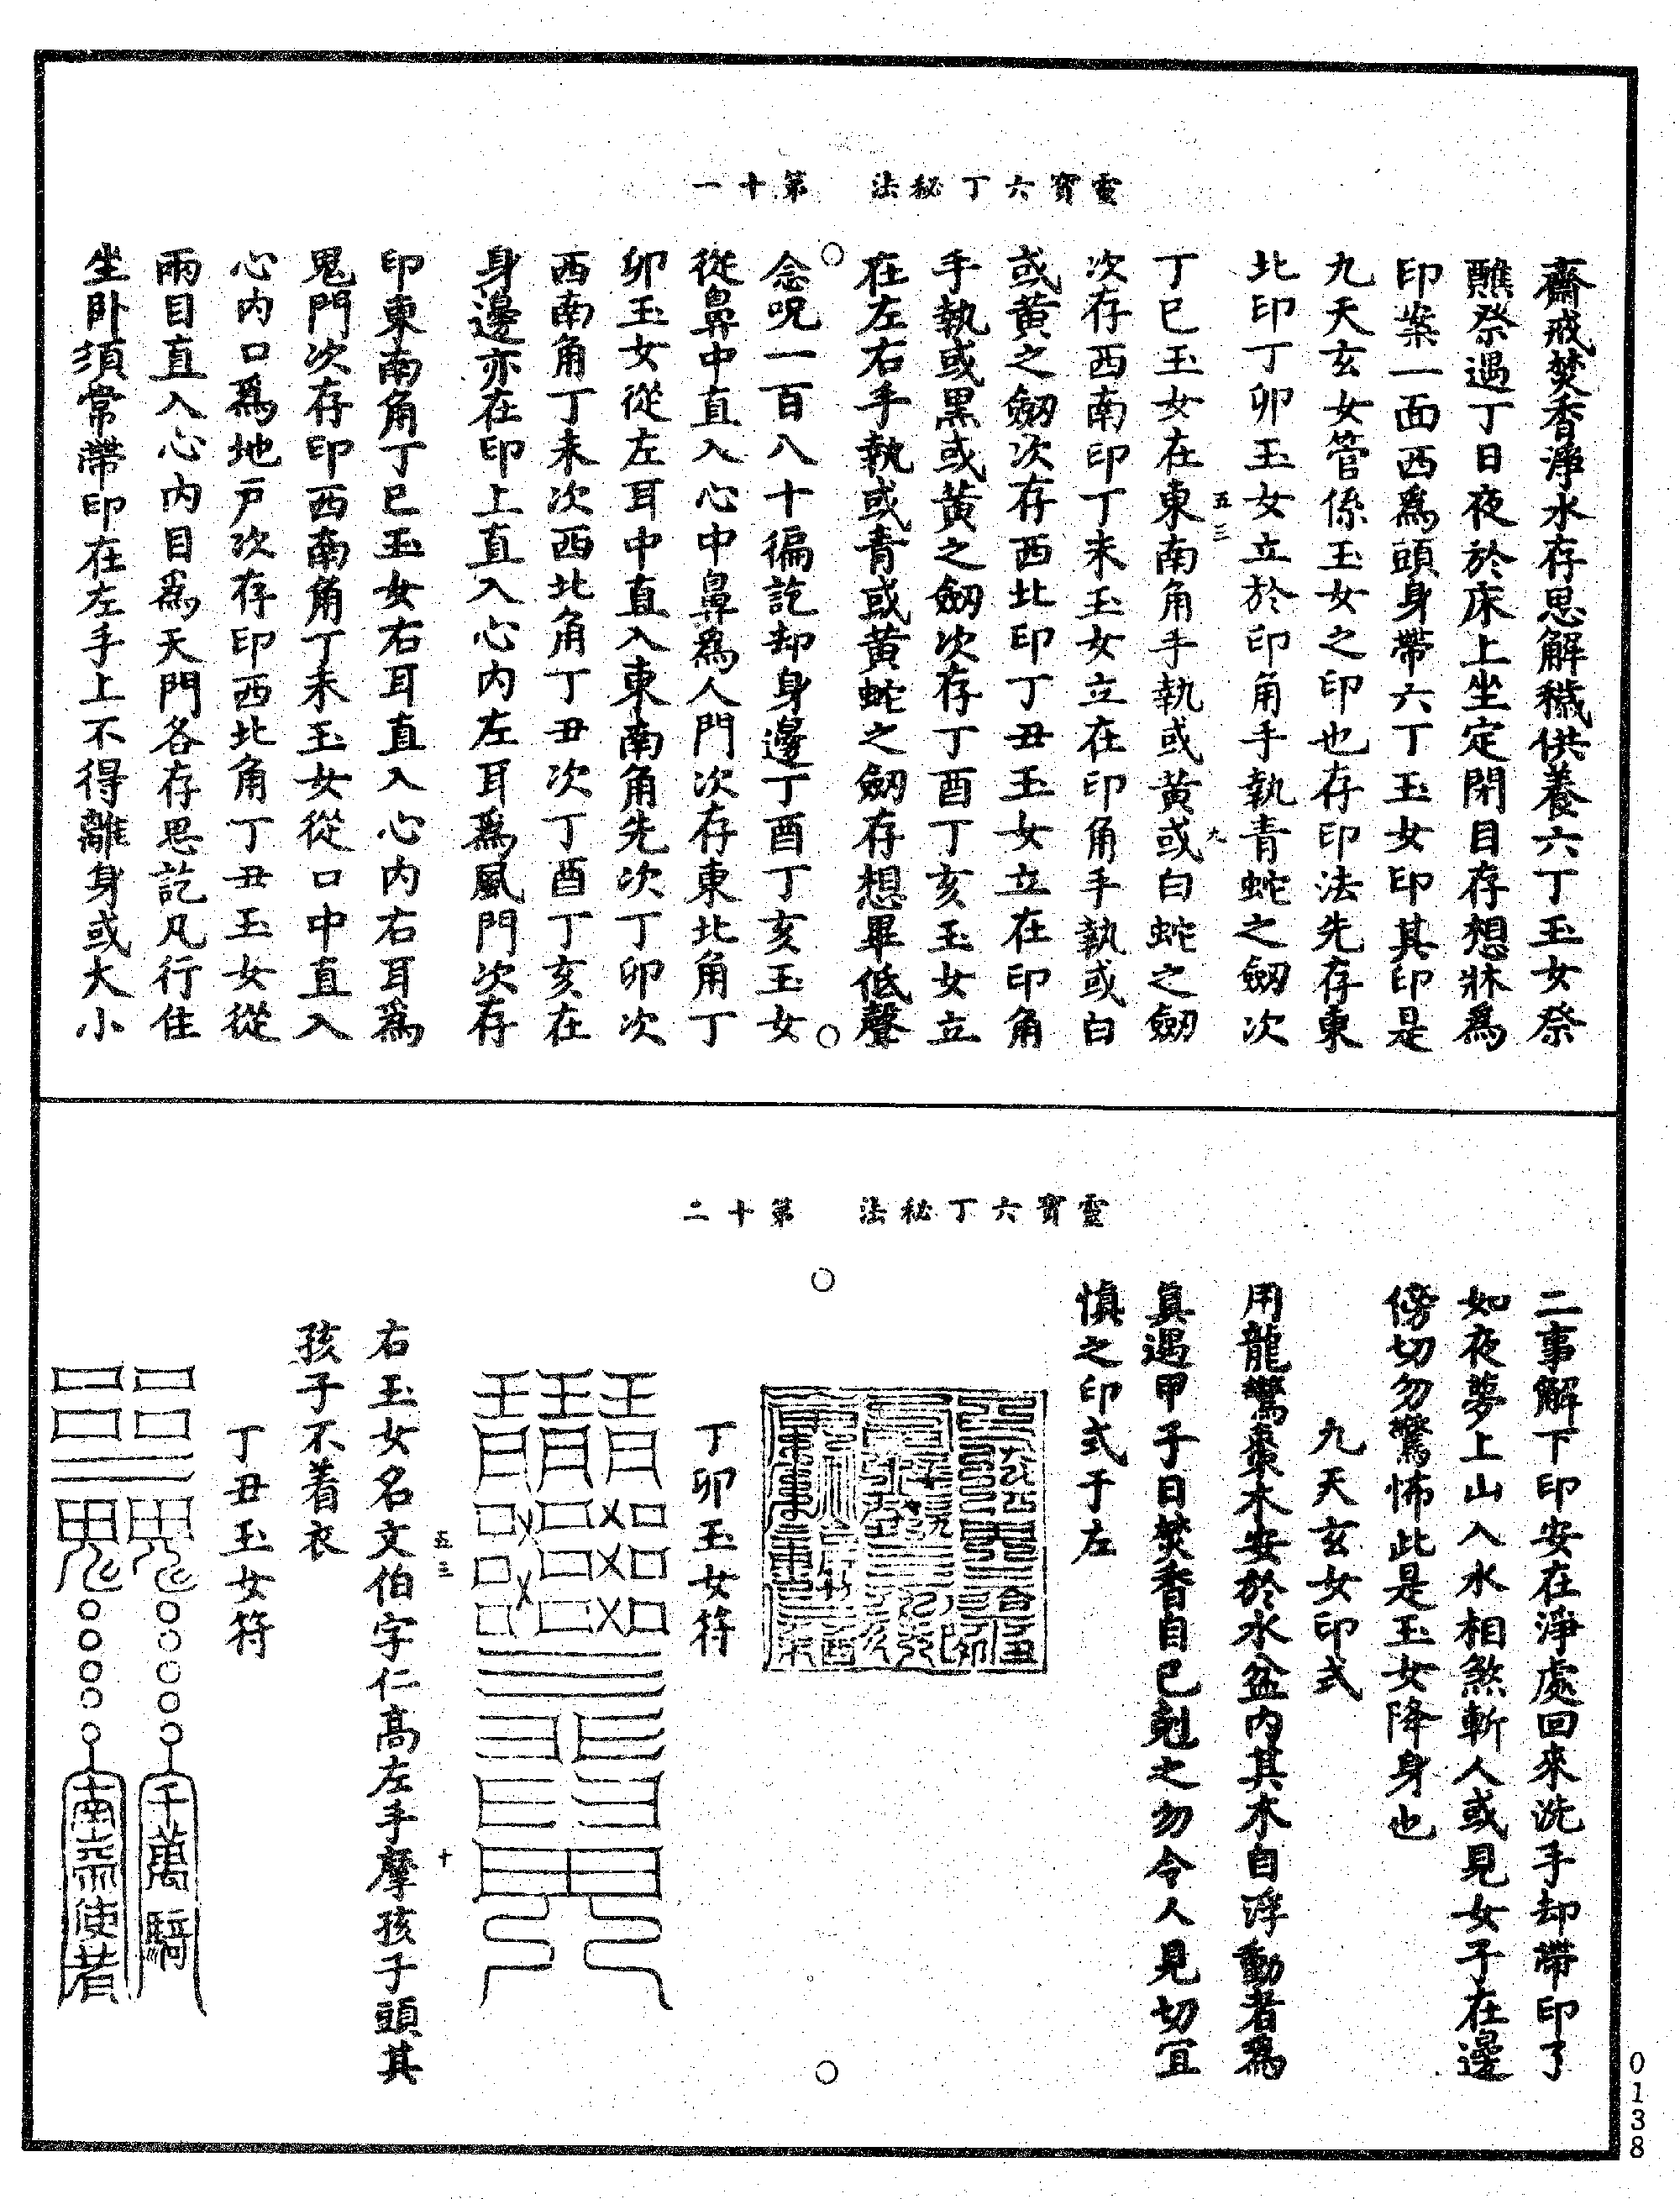 靈寶六丁秘法　第十一
齋戒焚香淨水存思解穢供養六丁玉女祭
醮祭遇丁日夜於床上坐定閉目存想牀爲
印案一面西爲頭身帶六丁玉女印其印是
九天玄女管係玉女之印也存印法先存東
北印丁卯玉女立於印角手執青蛇之劒次
五三
九
丁巳玉女在東南角手執或黃或白蛇之劒
次存西南印丁未玉女立在印角手執或白
或黃之劒次存西北印丁丑玉女立在印角
手執或黑或黃之劒次存丁酉丁亥玉女立
在左右手執或青或黃蛇之劒存想畢低聲
念呪一百八十徧訖却身邊丁酉丁亥玉女
從鼻中直入心中鼻爲人門次存東北角丁
卯玉女從左耳中直入東南角先次丁卯次
西南角丁未次西北角丁丑次丁酉丁亥在
身邊亦在印上直入心內左耳爲風門次存
印東南角丁巳玉女右耳直入心內右耳爲
鬼門次存印西南角丁未玉女從口中直入
心內口爲地戶次存印西北角丁丑玉女從
兩目直入心內目爲天門各存思訖凡行住
坐卧須常帶印在左手上不得離身或大小
靈寶六丁秘法　第十二
二事解下印安在淨處回來洗手却帶印了
如夜夢上山入水相煞斬人或見女子在邊
傍切勿驚怖此是玉女降身也
九天玄女印式
用龍驚棗木安於水盆內其木自浮動者爲
真遇甲子日焚香自己剋之勿令人見切宜
慎之印式于左
丁卯玉女符
五三
十
右玉女名文伯字仁高左手摩孩子頭其
孩子不着衣
丁丑玉女符
千萬騎
南斎使者
0138